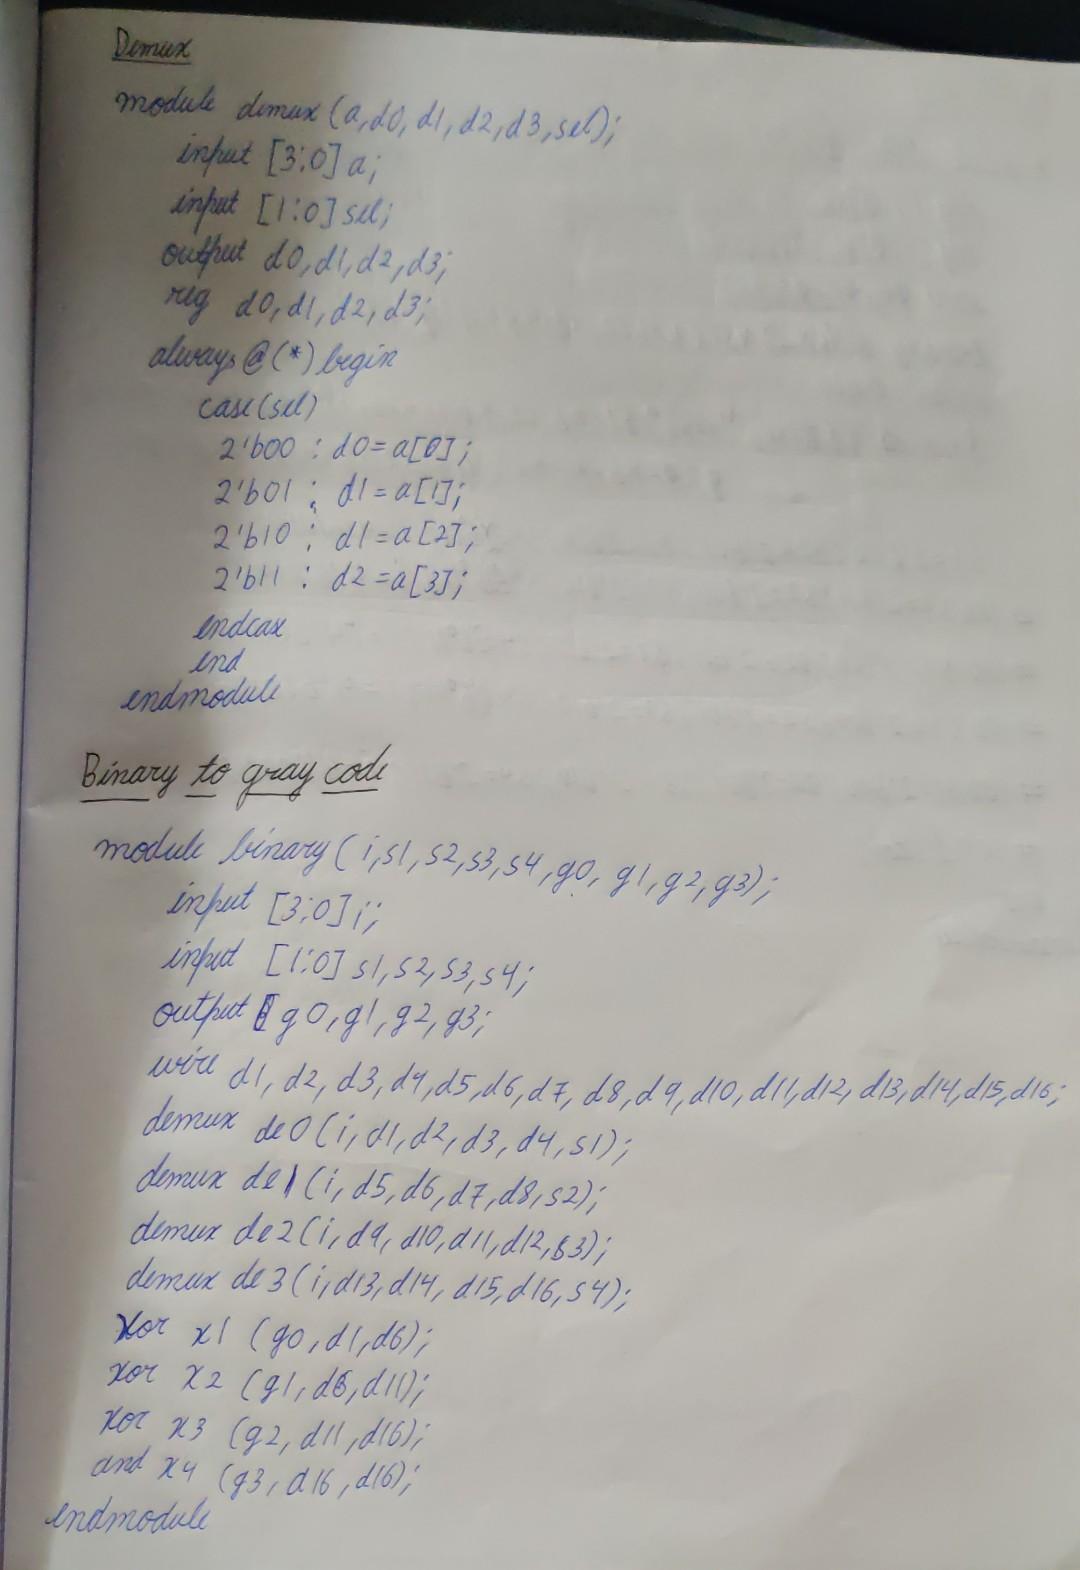 Demux
module demux (a,d0, d1, d2, d3, sel);
input [3:0] a;
input [1:0] sel;
output d0, d1, d2, d3;
reg d0, d1, d2, d3;
always @ (*) begin
case (sel)
2'b00 : d0 = a[0];
2'b01 : d1 = a[1];
2'b10 : d1 = a[2];
2'b11 : d2 = a[3];
endcase
end
endmodule
Binary to gray code
module binary ( i,s1, s2, s3, s4, g0, g1, g2, g3);
input [3:0] i;
input [1:0] s1, s2, s3, s4;
output g0, g1, g2, g3;
wire d1, d2, d3, d4, d5, d6, d7, d8, d9, d10, d11, d12, d13, d14, d15, d16;
demux de0 (i, d1, d2, d3, d4, s1);
demux de1 (i, d5, d6, d7, d8, s2);
demux de2 (i, d9, d10, d11, d12, s3);
demux de3 (i, d13, d14, d15, d16, s4);
xor x1 (g0, d1, d6);
xor x2 (g1, d6, d11);
xor x3 (g2, d11, d16);
and x4 (g3, d16, d16);
endmodule